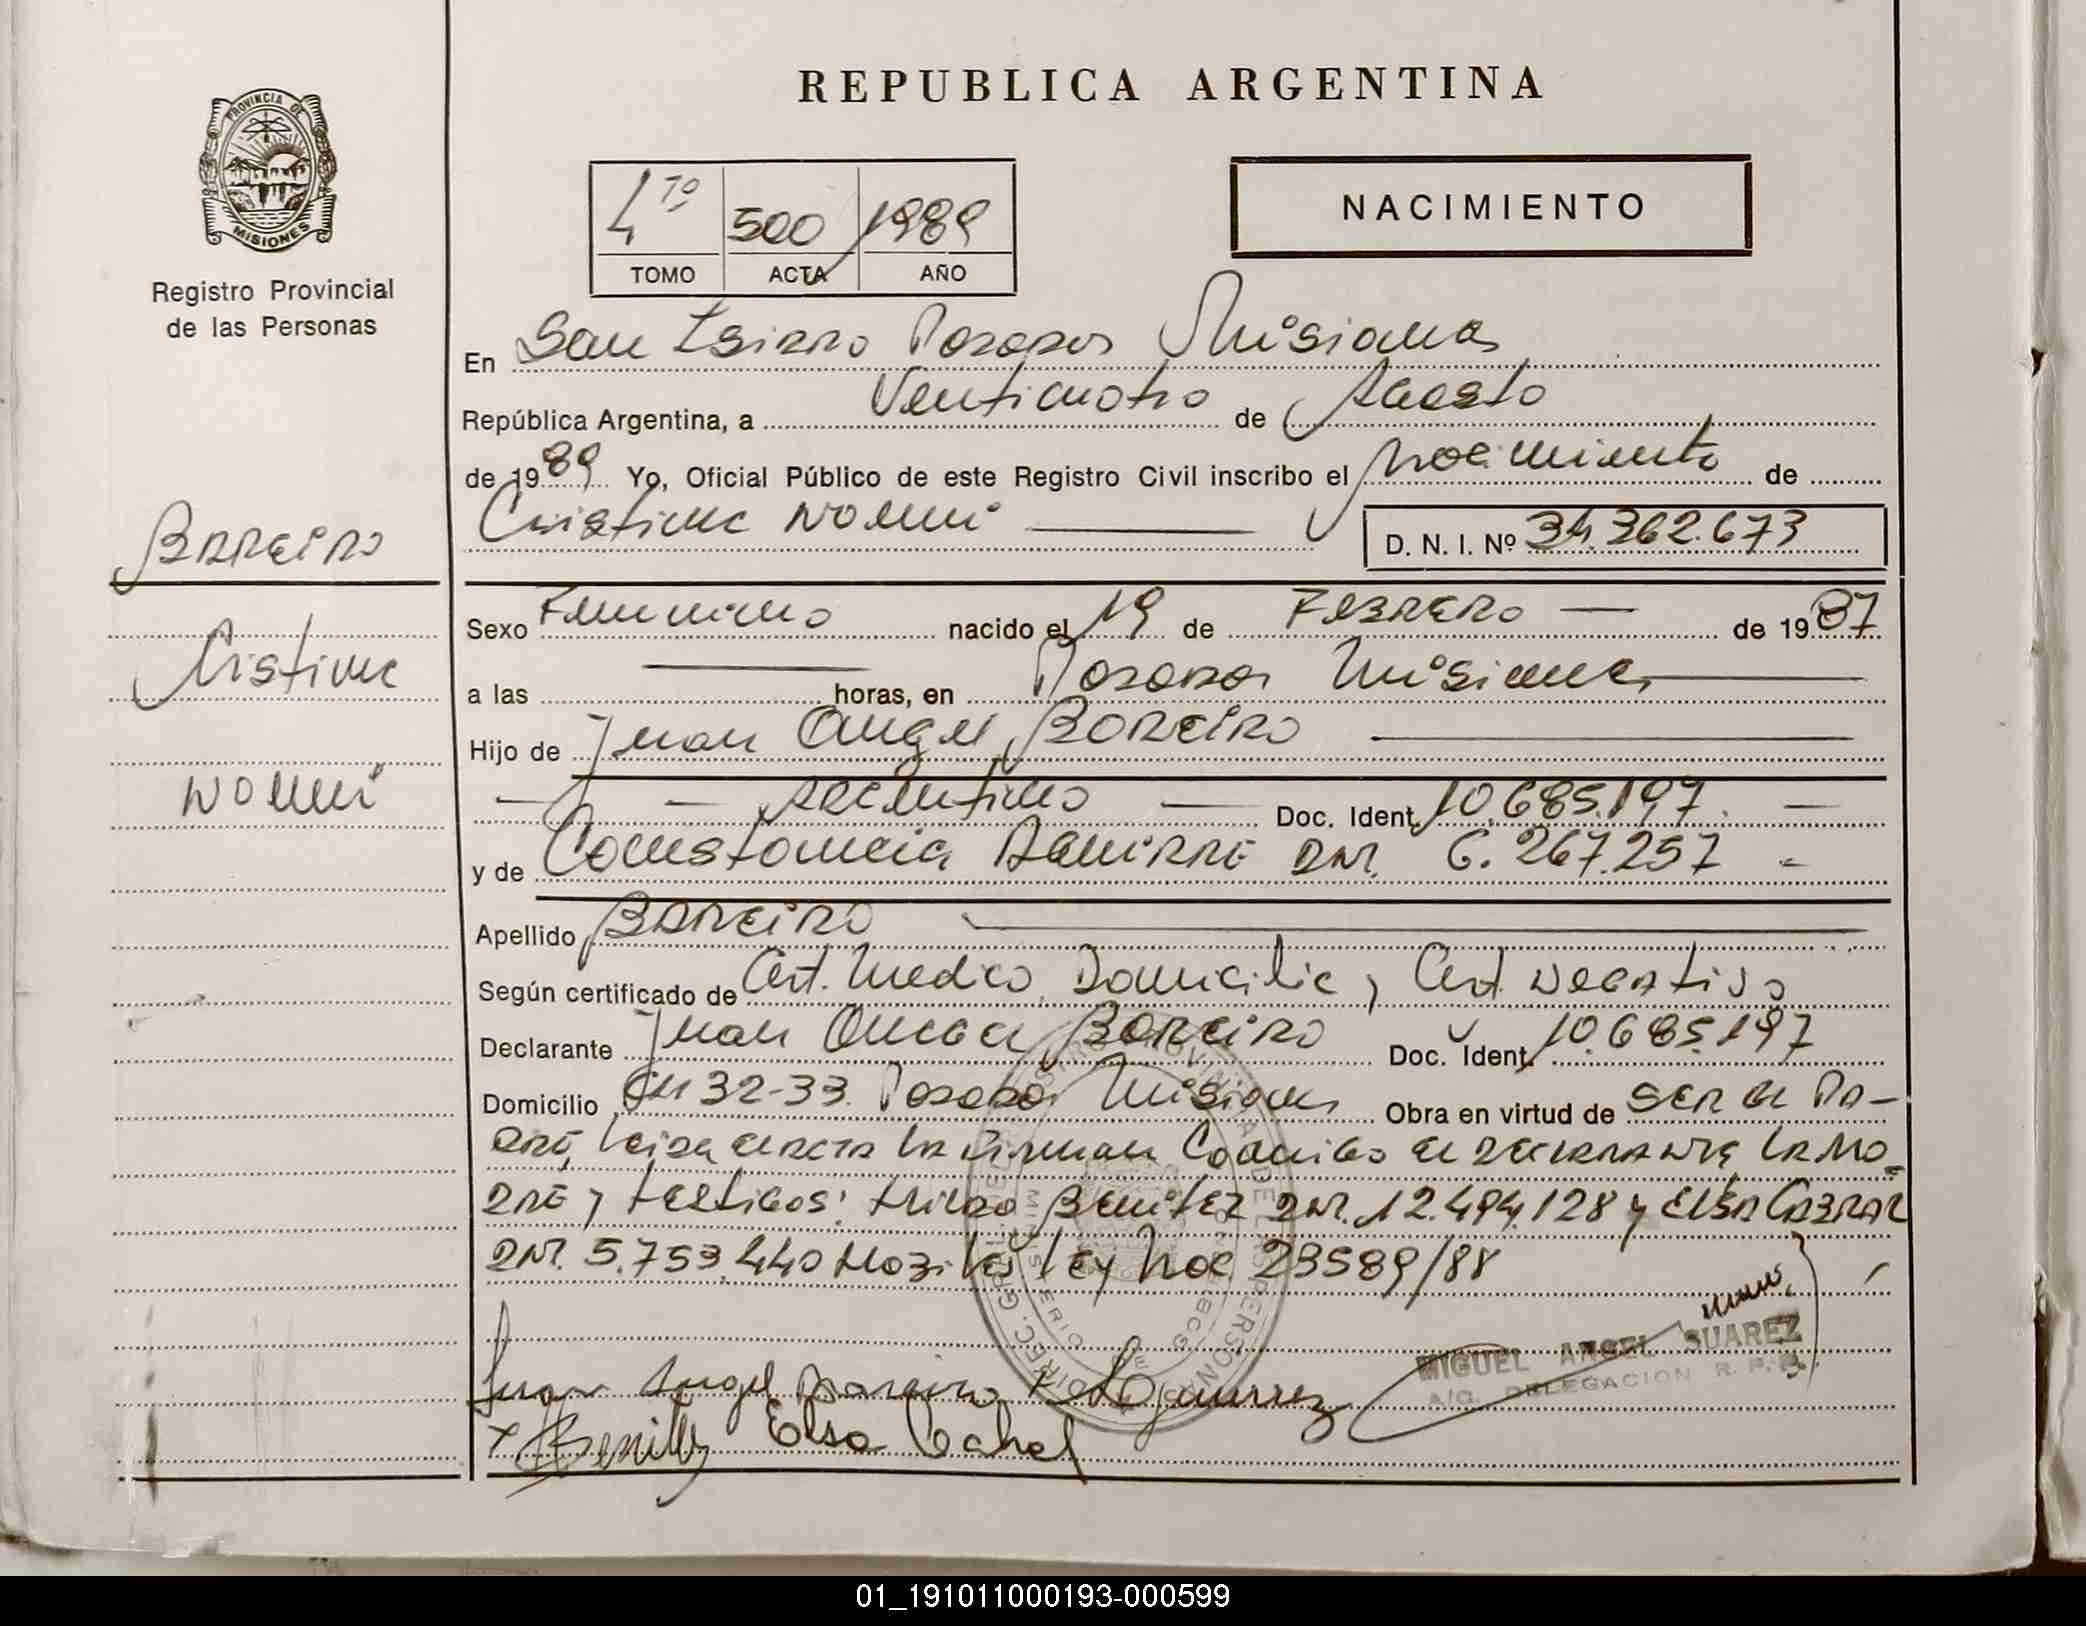 REPUBLICA ARGENTINA
PROVINCIA DE
MISIONES
Registro Provincial
de las Personas
4to 500 1989
TOMO ACTA AÑO
NACIMIENTO
En San Isidro Posadas Misiones
República Argentina, a Venticuatro de Agosto
de 1989 Yo, Oficial Público de este Registro Civil inscribo el nacimiento de
Cristina Noemi
D. N. I. Nº 34.362.673
Bareiro
Cristina
Noemi
Sexo Femenino nacido el 19 de Febrero de 1987
a las horas, en Posadas Misiones
Hijo de Juan Angel Bareiro
Argentino Doc. Ident. 10.685.197.
y de Constancia Aguirre DNI. 6.267.257
Apellido Bareiro
Según certificado de Cert. Medico Domicilio y Cert Negativo
Declarante Juan Angel Bareiro Doc. Ident. 10.685.197
Domicilio CH 32-33 Posadas Misiones Obra en virtud de ser el Pa-
dre, leida el acta la firman conmigo el declarante la Ma-
dre y testigos: Benitez DNI. 12.494.128 y Elsa Cabral
DNI. 5.753.440 ley Nac 23589/88
MIGUEL ANGEL SUAREZ
A/C. DELEGACION R. P. P.
Juan Angel Bareiro
Benitez Elsa Cabral
01_191011000193-000599